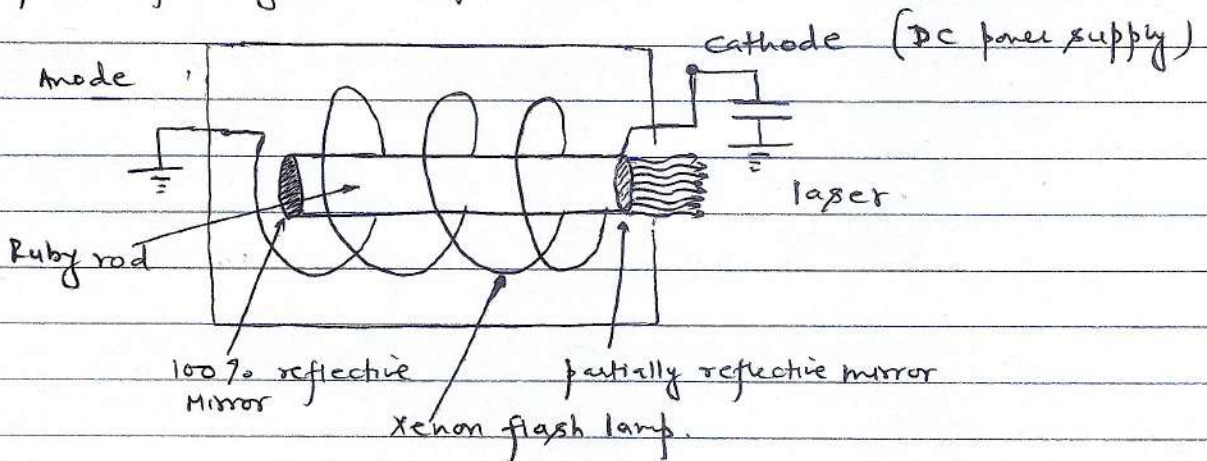 Cathode (DC power supply)
Anode
laser.
Ruby rod
100% reflective
Mirror
partially reflective mirror
Xenon flash lamp.